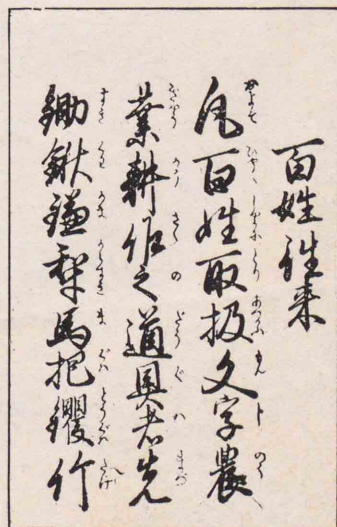 百姓往来
凡百姓取扱文字農
業耕作之道具者先
鋤鍬鎌犂馬把钁竹